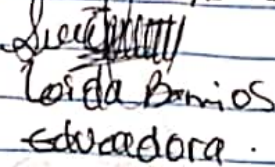 Loida Barrios
educadora.